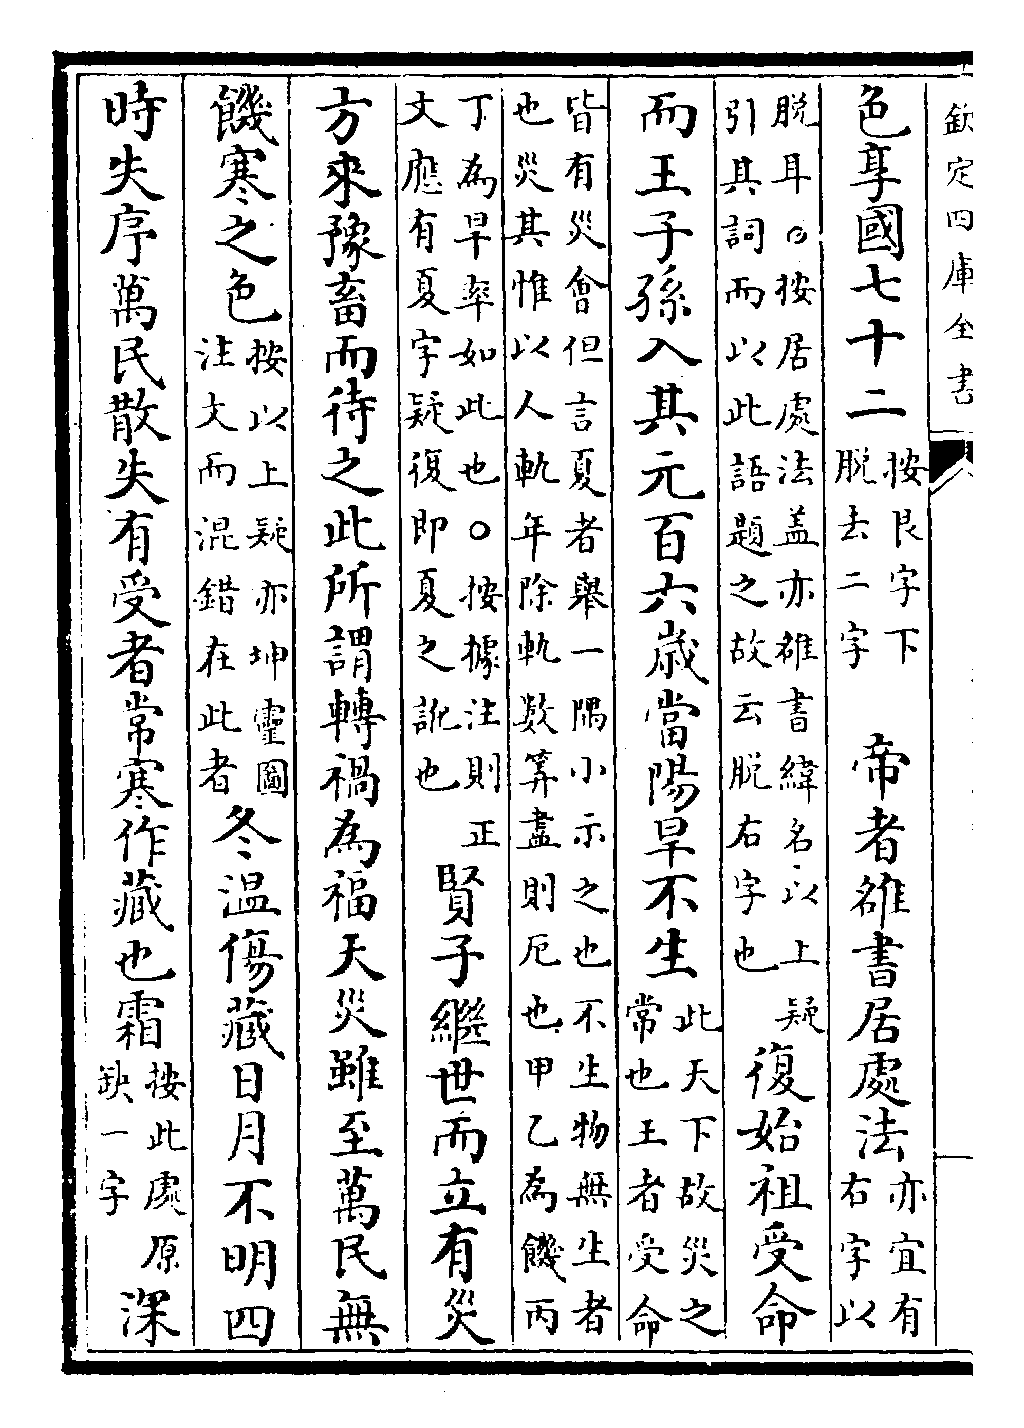 欽定四庫全書
色享國七十二按艮字下脱去二字帝者雒書居處法亦宜有右字以
脱耳○按居處法盖亦雒書緯名以上疑引其詞而以此語題之故云脱右字也復始祖受命
而王子孫入其元百六歳當陽旱不生此天下故災之常也王者受命
皆有災會但言夏者舉一隅小示之也不生物無生者也災其惟以人軌年除軌數筭盡則厄也甲乙為饑丙
丁為旱率如此也○按據注則正文應有夏字疑復即夏之訛也賢子繼世而立有災
方來豫畜而待之此所謂轉禍為福天災雖至萬民無
饑寒之色按以上疑亦坤靈圖注文而混錯在此者冬温傷藏日月不明四
時失序萬民散失有受者常寒作藏也霜按此處原缺一字深